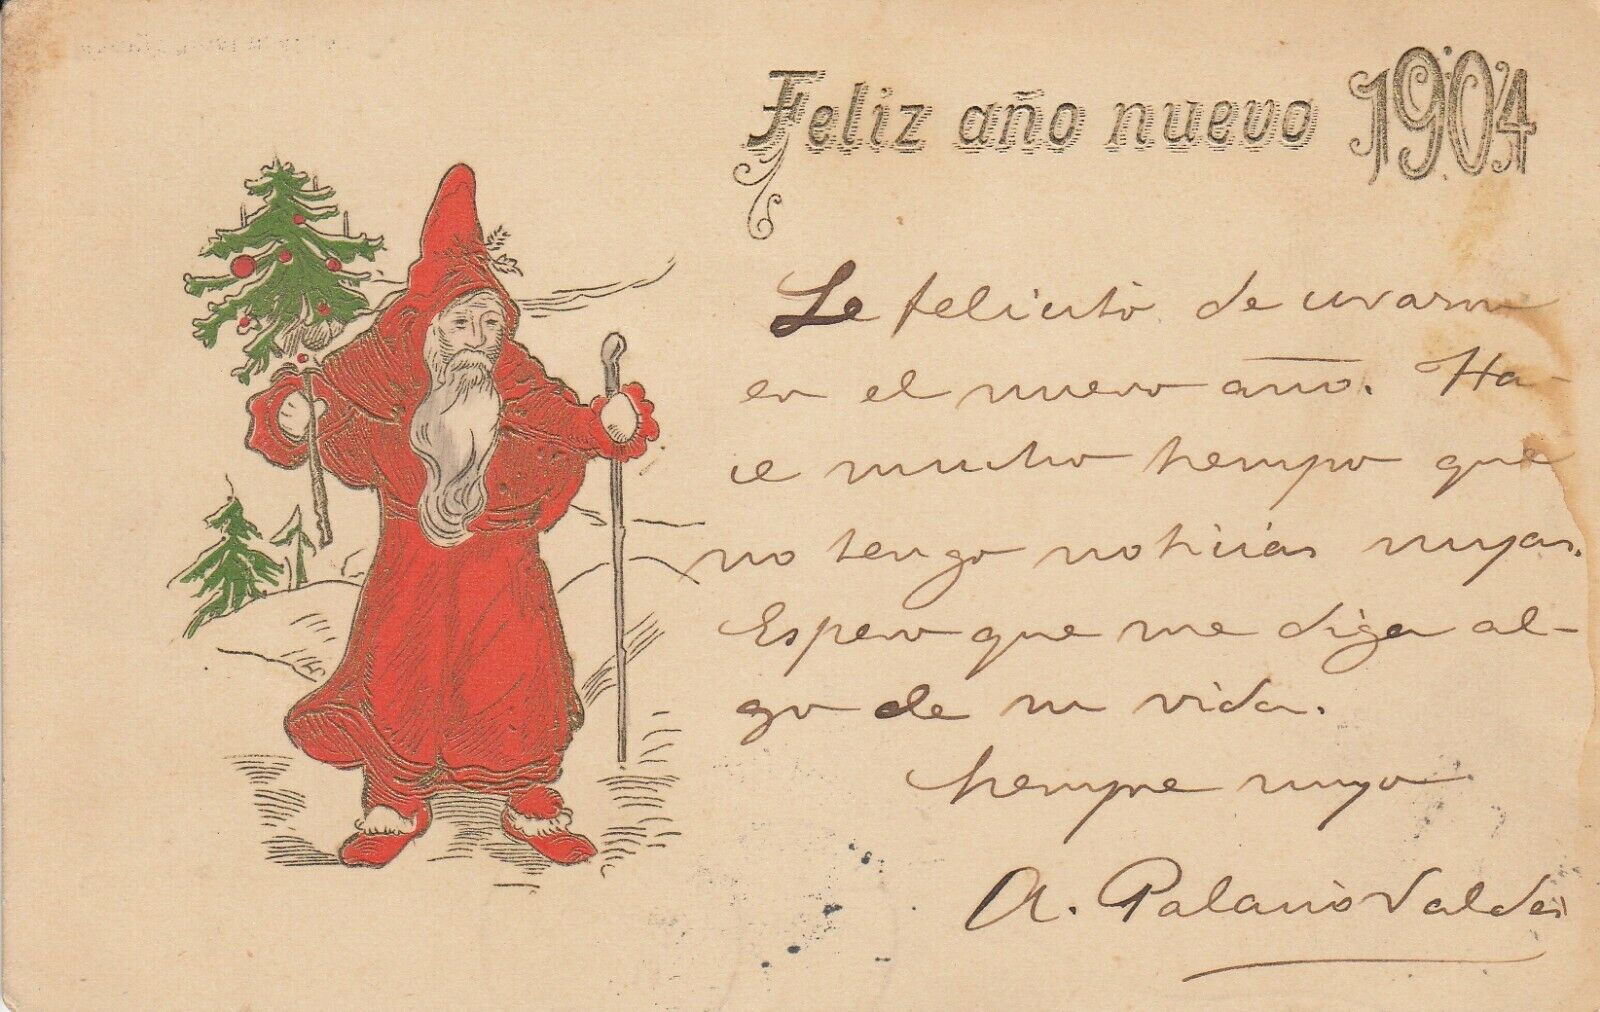 Feliz año nuevo 1904
Le felicito de
en el nuevo año. Ha-
ce mucho tiempo que
no tengo noticias suyas.
Espero que me diga al-
go de su vida.
Siempre suyo
A. Palacio Valdés